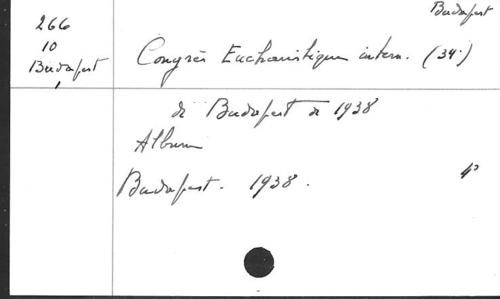 Budapest
266
10
Budapest
Congrès Eucharistique intern. (34.)
de Budapest de 1938
Album
Budapest. 1938.
4°